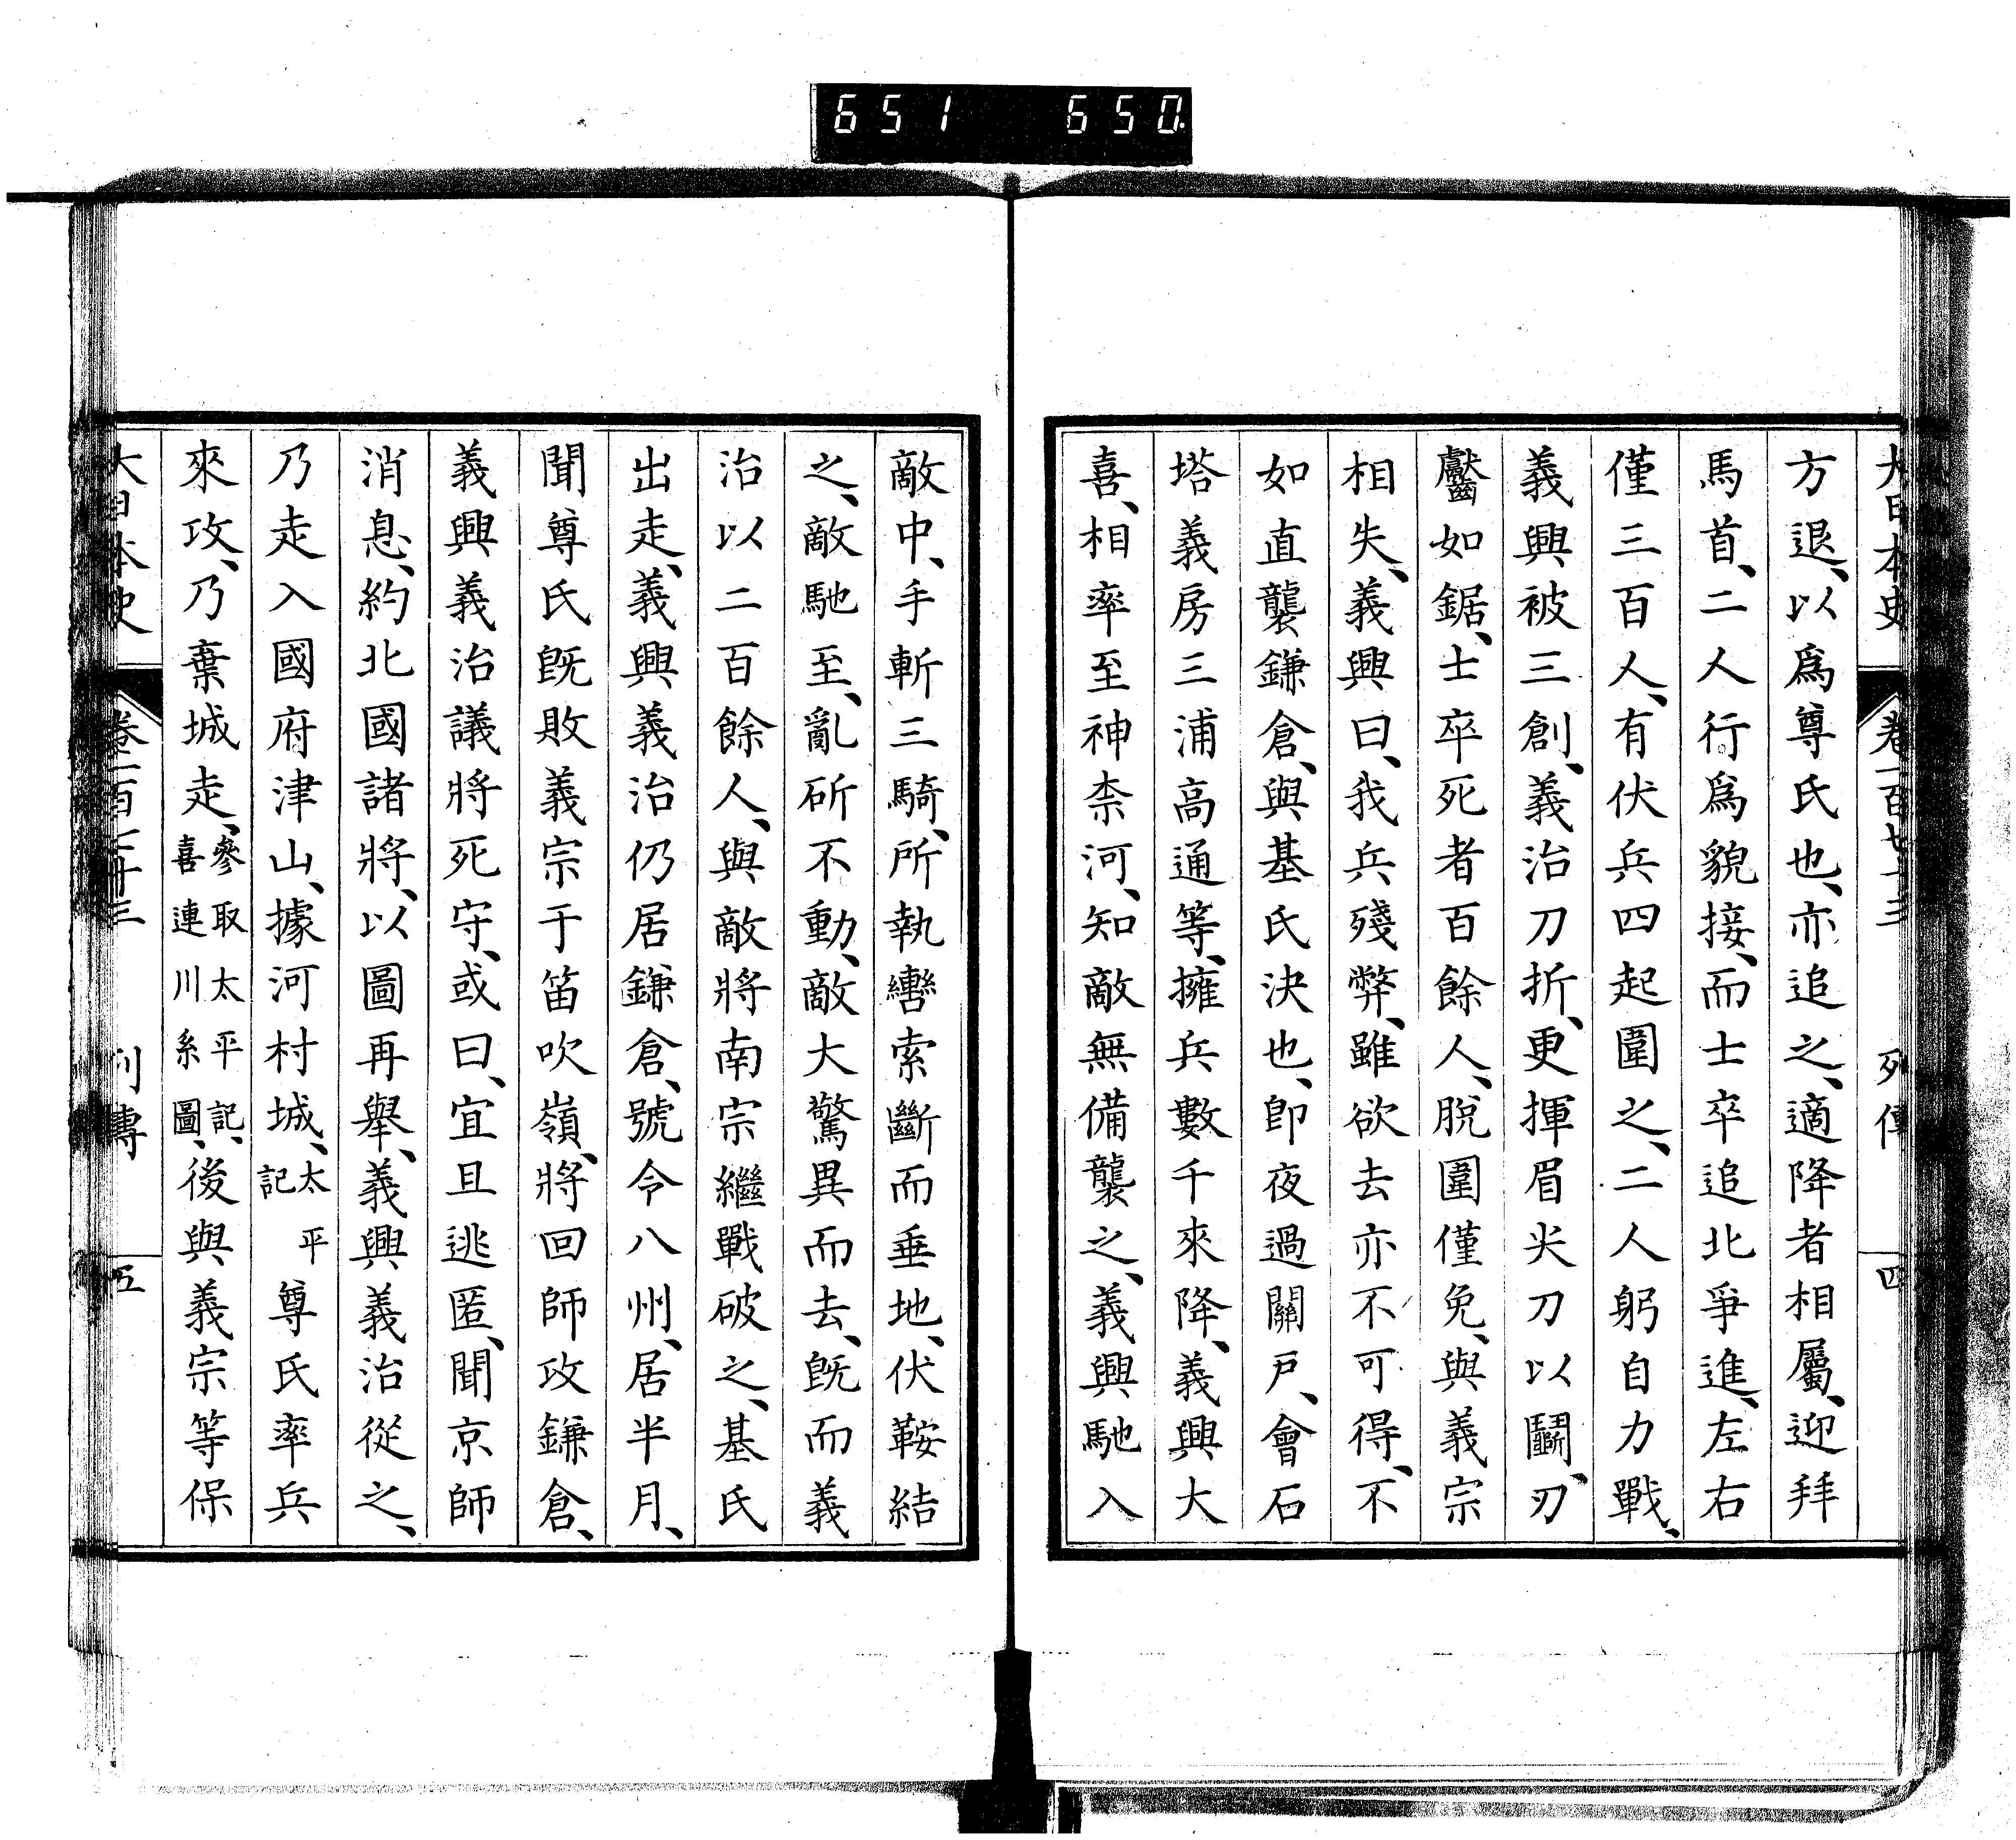 651 650
大日本史 卷一百七十三 列傳 四
方退、以爲尊氏也、亦追之、適降者相屬、迎拜
馬首、二人行爲貌接、而士卒追北爭進、左右
僅三百人、有伏兵四起圍之、二人躬自力戰、
義興被三創、義治刀折、更揮眉尖刀以鬭、刃
齾如鋸、士卒死者百餘人、脫圍僅免、與義宗
相失、義興曰、我兵殘弊、雖欲去亦不可得、不
如直襲鎌倉、與基氏決也、卽夜過關戸、會石
塔義房三浦高通等、擁兵數千來降、義興大
喜、相率至神柰河、知敵無備襲之、義興馳入
敵中、手斬三騎、所執轡索斷而垂地、伏鞍結
之、敵馳至、亂斫不動、敵大驚異而去、既而義
治以二百餘人、與敵將南宗繼戰破之、基氏
出走、義興義治仍居鎌倉、號令八州、居半月、
聞尊氏既敗義宗于笛吹嶺、將回師攻鎌倉、
義興義治議將死守、或曰、宜且逃匿、聞京師
消息、約北國諸將、以圖再擧、義興義治從之、
乃走入國府津山、據河村城、太平記尊氏率兵
來攻、乃棄城走、參取太平記、喜連川系圖、後與義宗等保
大日本史 卷一百七十三 列傳 五